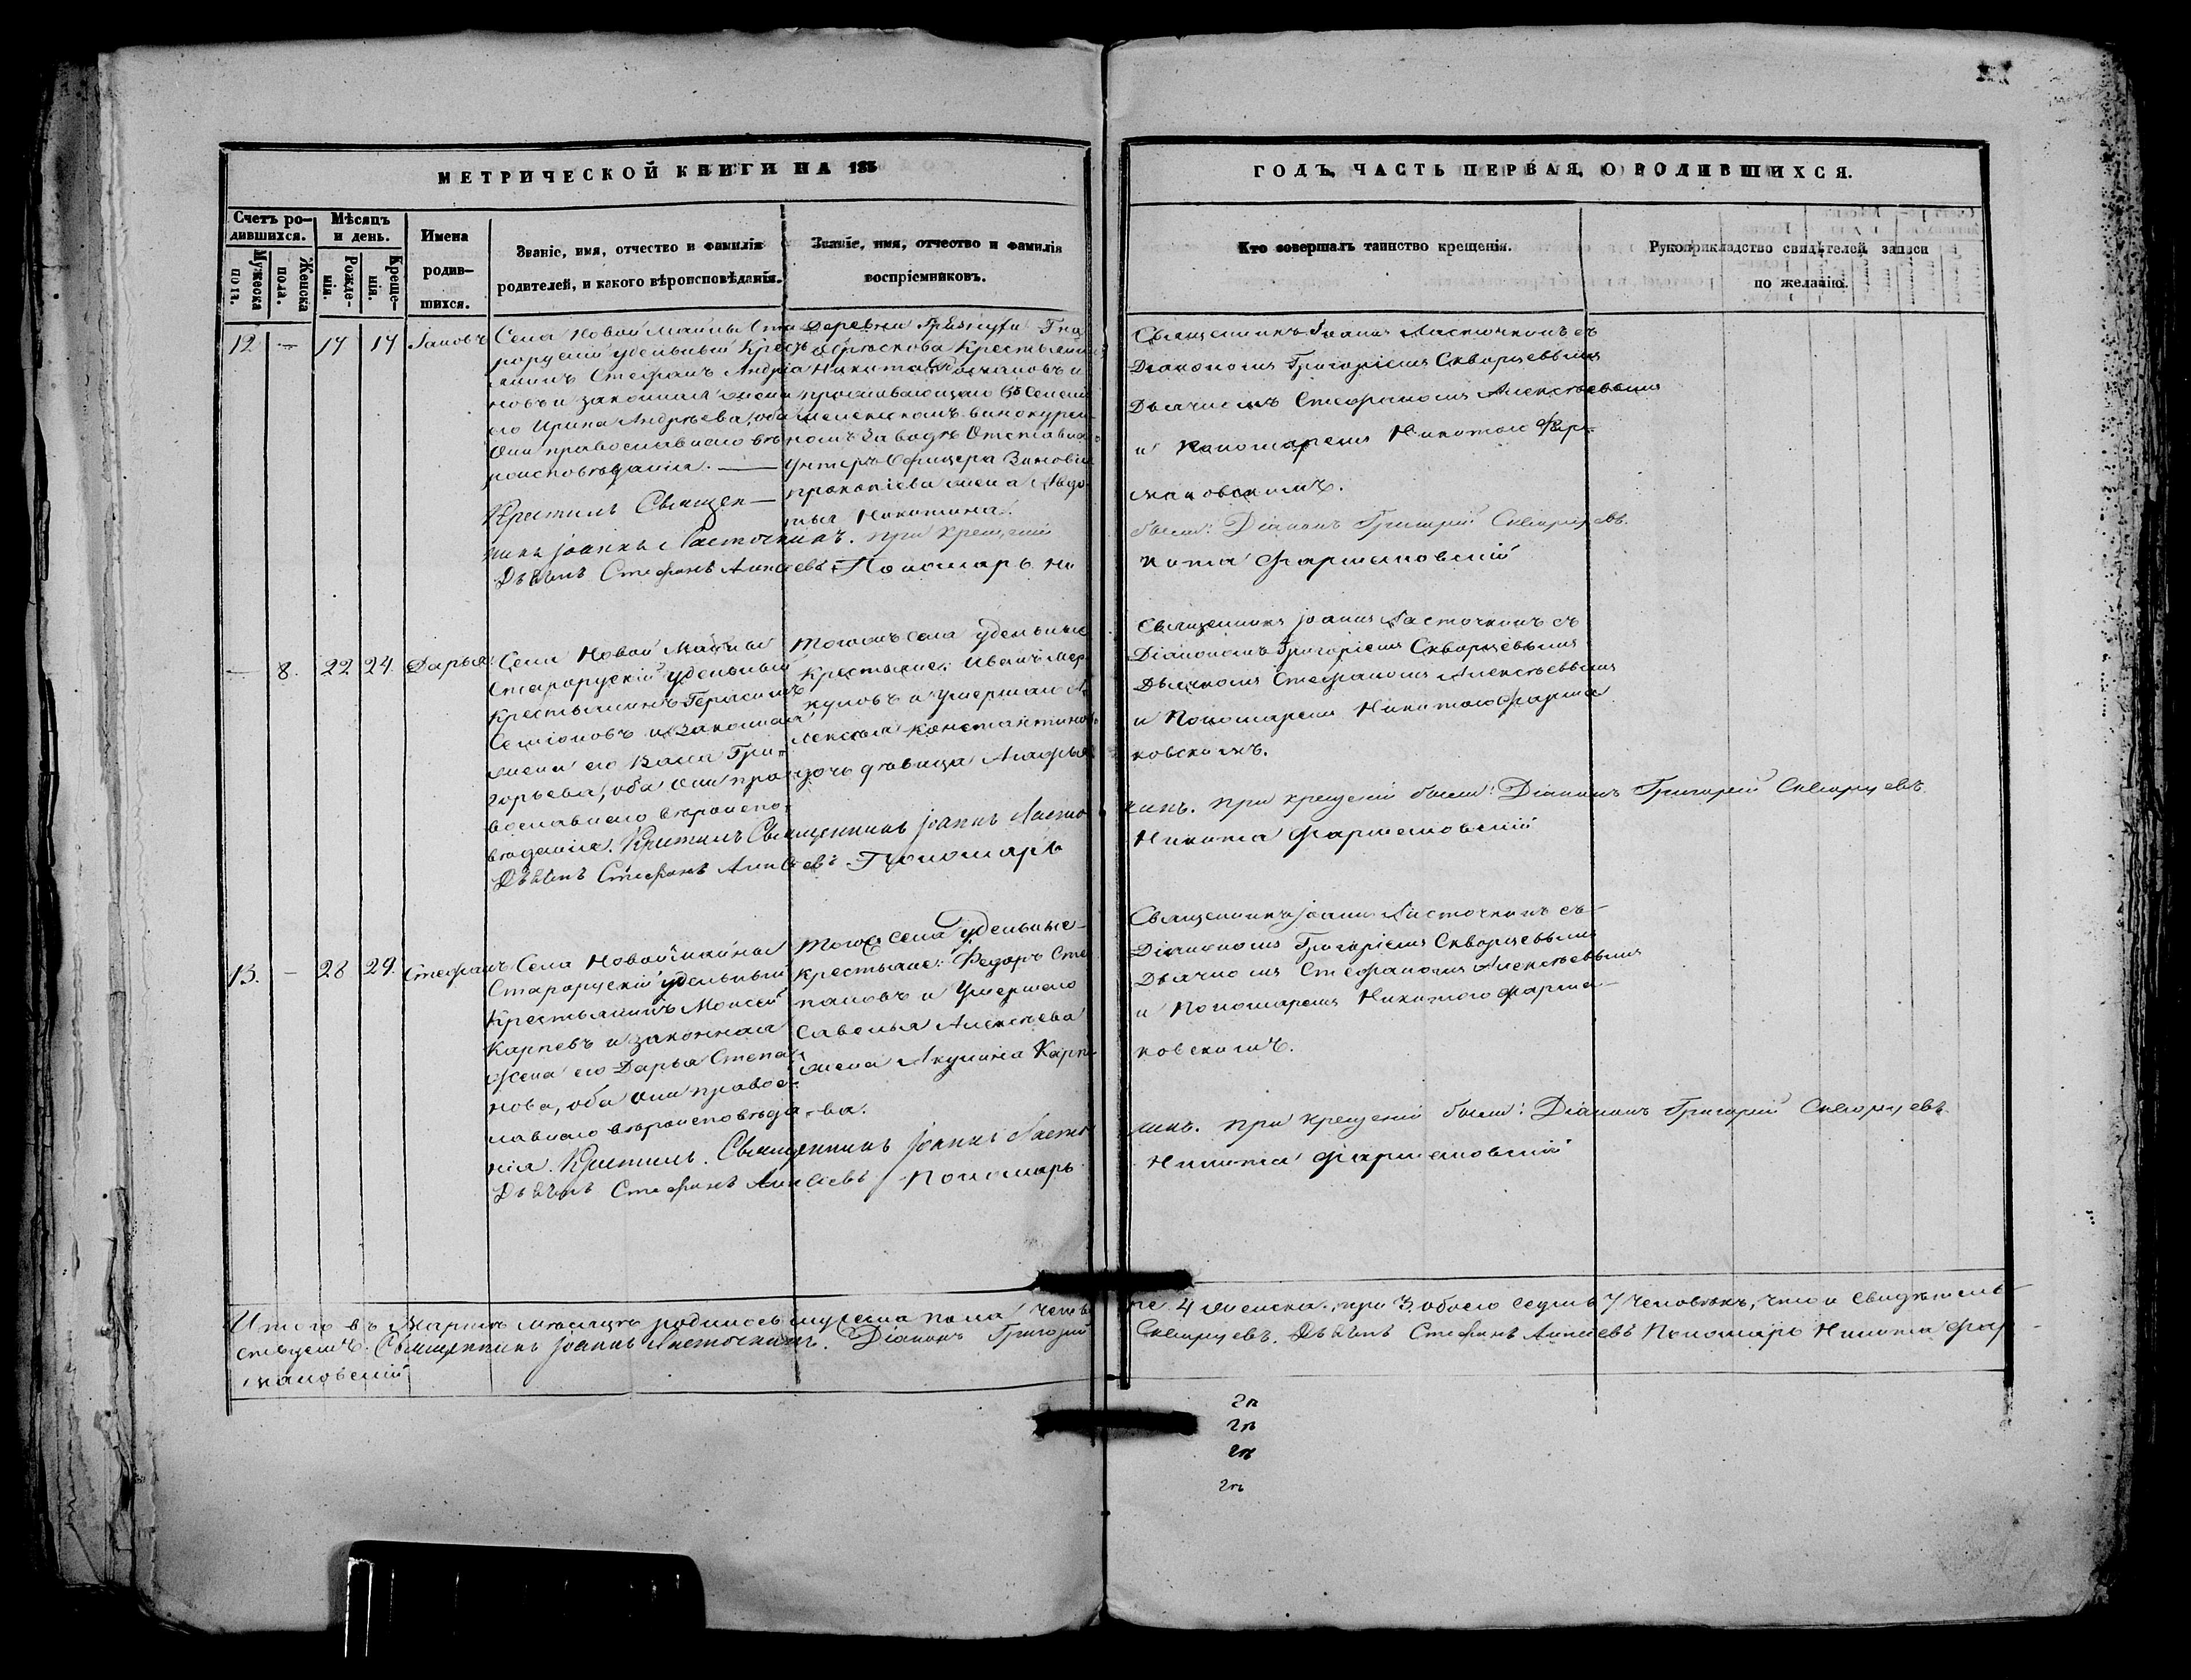 МЕТРИЧЕСКОЙ КНИГИ НА 185
ГОДЪ, ЧАСТЬ ПЕРВАЯ, О РОДИВШИХСЯ.
Счетъ ро-
дившихся.
Мужеска
пола.
Женска
пола.
Мѣсяцъ
и день.
Рожде-
нія.
Креще-
нія.
Имена
родив-
шихся.
Званіе, имя, отчество и фамилія
родителей, и какого вѣроисповѣданія.
Званіе, имя, отчество и фамилія
воспріемниковъ.
Кто совершалъ таинство крещенія.
Рукоприкладство свидѣтелей записи
по желанію.
12 — 17 17 Іаковъ
Села Новой Майны Ста
рорускій удельный Кресть
янинъ Стефанъ Андріа
новъ и законная жена
его Ирина Андрѣева, оба
они православнаго вѣ
роисповѣданія. —
Крестилъ Священ—
никъ Іоаннъ Ласточкинъ. При крещеніи
Дьячекъ Стефанъ Алексѣевъ Пономарь Ни
Деревни Грязнухи
Крестьянинъ
Никита Романовъ и
проживающаго въ
винокурен
номъ Заводѣ Отставна
Унтеръ Офицера Зиновія
Прокопіева жена Авдо
тья Никитина.
Священникъ Іоаннъ Ласточкинъ съ
Діакономъ Григоріемъ Скворцевымъ
Дьячкомъ Стефаномъ Алексѣевымъ
и Пономаремъ Никитою Фар-
маковскимъ.
были: Діаконъ Григорій Скворцевъ.
кита Фармаковскій
— 8. 22 24. Дарья
Села Новой Майны
Старорускій удельный
Крестьянинъ Герасимъ
Семіоновъ и законная
жена его Васса Гри-
горьева, оба они пра
вославнаго вѣроиспо-
вѣданія. Крестилъ Священникъ Іоаннъ Ласто
Дьячекъ Стефанъ Алексѣевъ Пономарь
Тогожъ села удельные
Крестьяне: Иванъ Мер
куловъ и умершаго А
лексѣя Константино
дочь дѣвица Агафья
Священникъ Іоаннъ Ласточкинъ съ
Діакономъ Григоріемъ Скворцевымъ
Дьячкомъ Стефаномъ Алексѣевымъ
и Пономаремъ Никитою Фарма
ковскимъ.
чкинъ. При крещеніи были: Діаконъ Григорій Скворцевъ.
Никита Фармаковскій
13. — 28 29. Стефанъ
Села Новой Майны
Старорускій удельный
Крестьянинъ Моисей
Карпевъ и законная
жена его Дарья Степа-
нова, оба они правос-
лавнаго вѣроисповѣда-
нія. Крестилъ. Священникъ Іоаннъ Ласто
Дьячекъ Стефанъ Алексѣевъ Пономарь
Тогоже села удельные
Крестьяне: Федоръ Сте
пановъ и умершаго
Савелья Алексѣева
жена Акулина Карпе
ва.
Священникъ Іоаннъ Ласточкинъ съ
Діакономъ Григоріемъ Скворцевымъ
Дьячкомъ Стефаномъ Алексѣевымъ
и Пономаремъ Никитою Фарма-
ковскимъ.
чкинъ. При крещеніи были: Діаконъ Григорій Скворцевъ.
Никита Фармаковскій
Итого въ Мартѣ мѣсяцѣ родилось мужска пола четы ре 4 женска три 3, обоего седмь 7 человѣкъ, что и свидѣтель
ствуемъ. Священникъ Іоаннъ Ласточкинъ. Діаконъ Григорій Скворцевъ. Дьячекъ Стефанъ Алексѣевъ Пономарь Никита Фар
маковскій